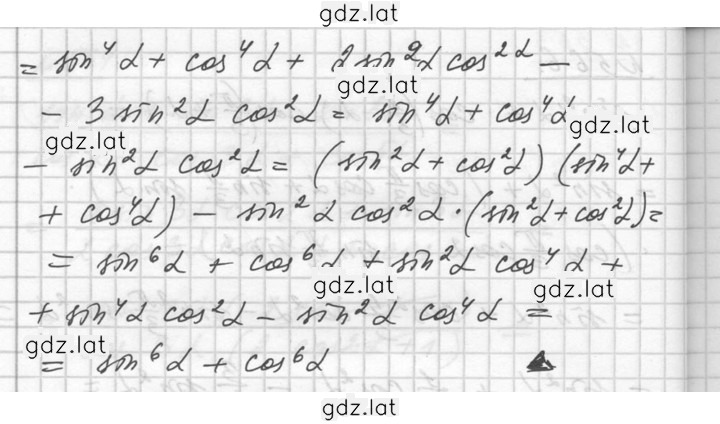 gdz.lat
= sin⁴α + cos⁴α + 2 sin²α cos²α –
gdz.lat
– 3 sin²α cos²α = sin⁴α + cos⁴α
gdz.lat
gdz.lat
– sin²α cos²α = (sin²α + cos²α) (sin⁴α +
+ cos⁴α) – sin²α cos²α · (sin²α + cos²α) =
= sin⁶α + cos⁶α + sin²α cos⁴α +
gdz.lat gdz.lat
+ sin⁴α cos²α – sin²α cos⁴α =
gdz.lat
= sin⁶α + cos⁶α
gdz.lat